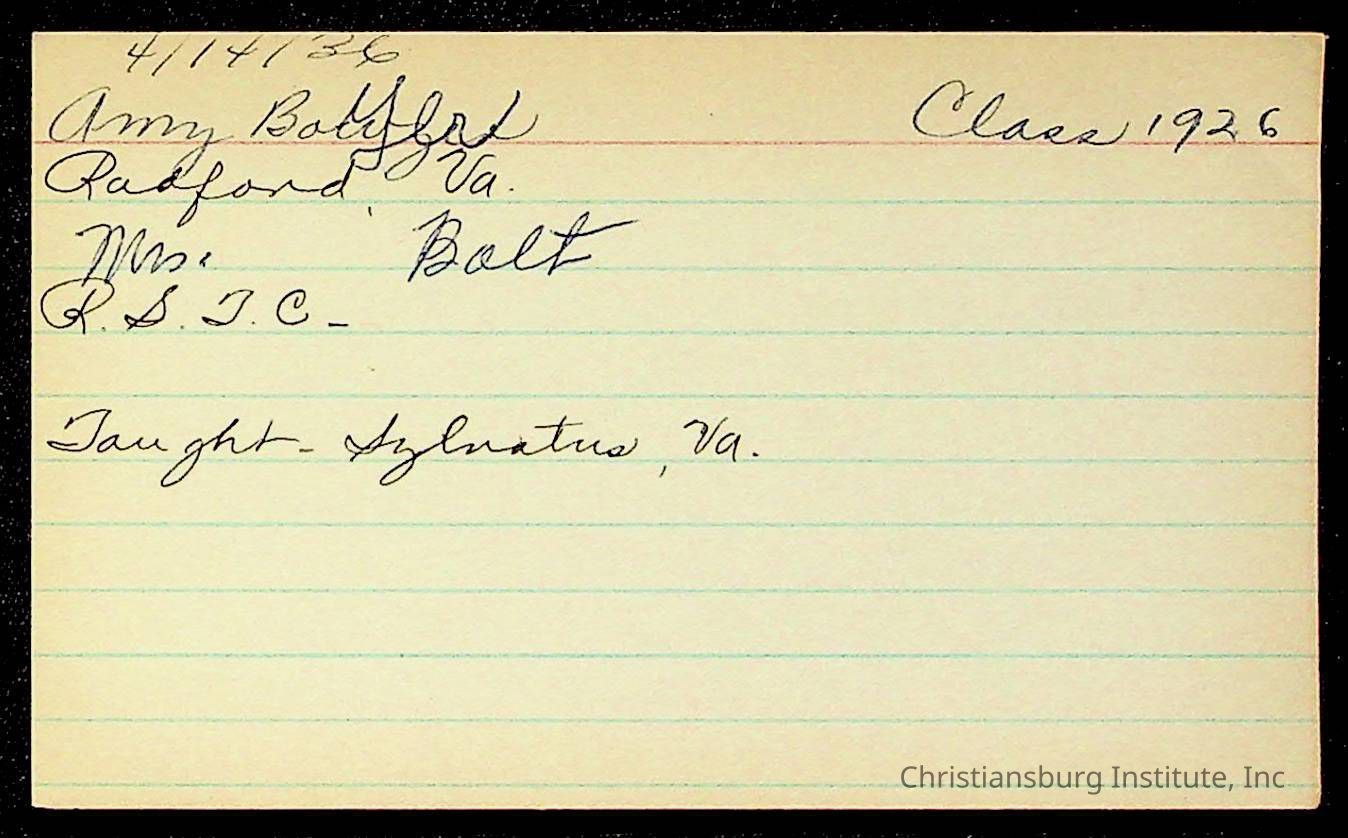 4/14/36
Amy Class 1926
Radford, Va.
Mrs. Bolt
R. S. T. C -
Taught - Sylvatus, Va.
Christiansburg Institute, Inc